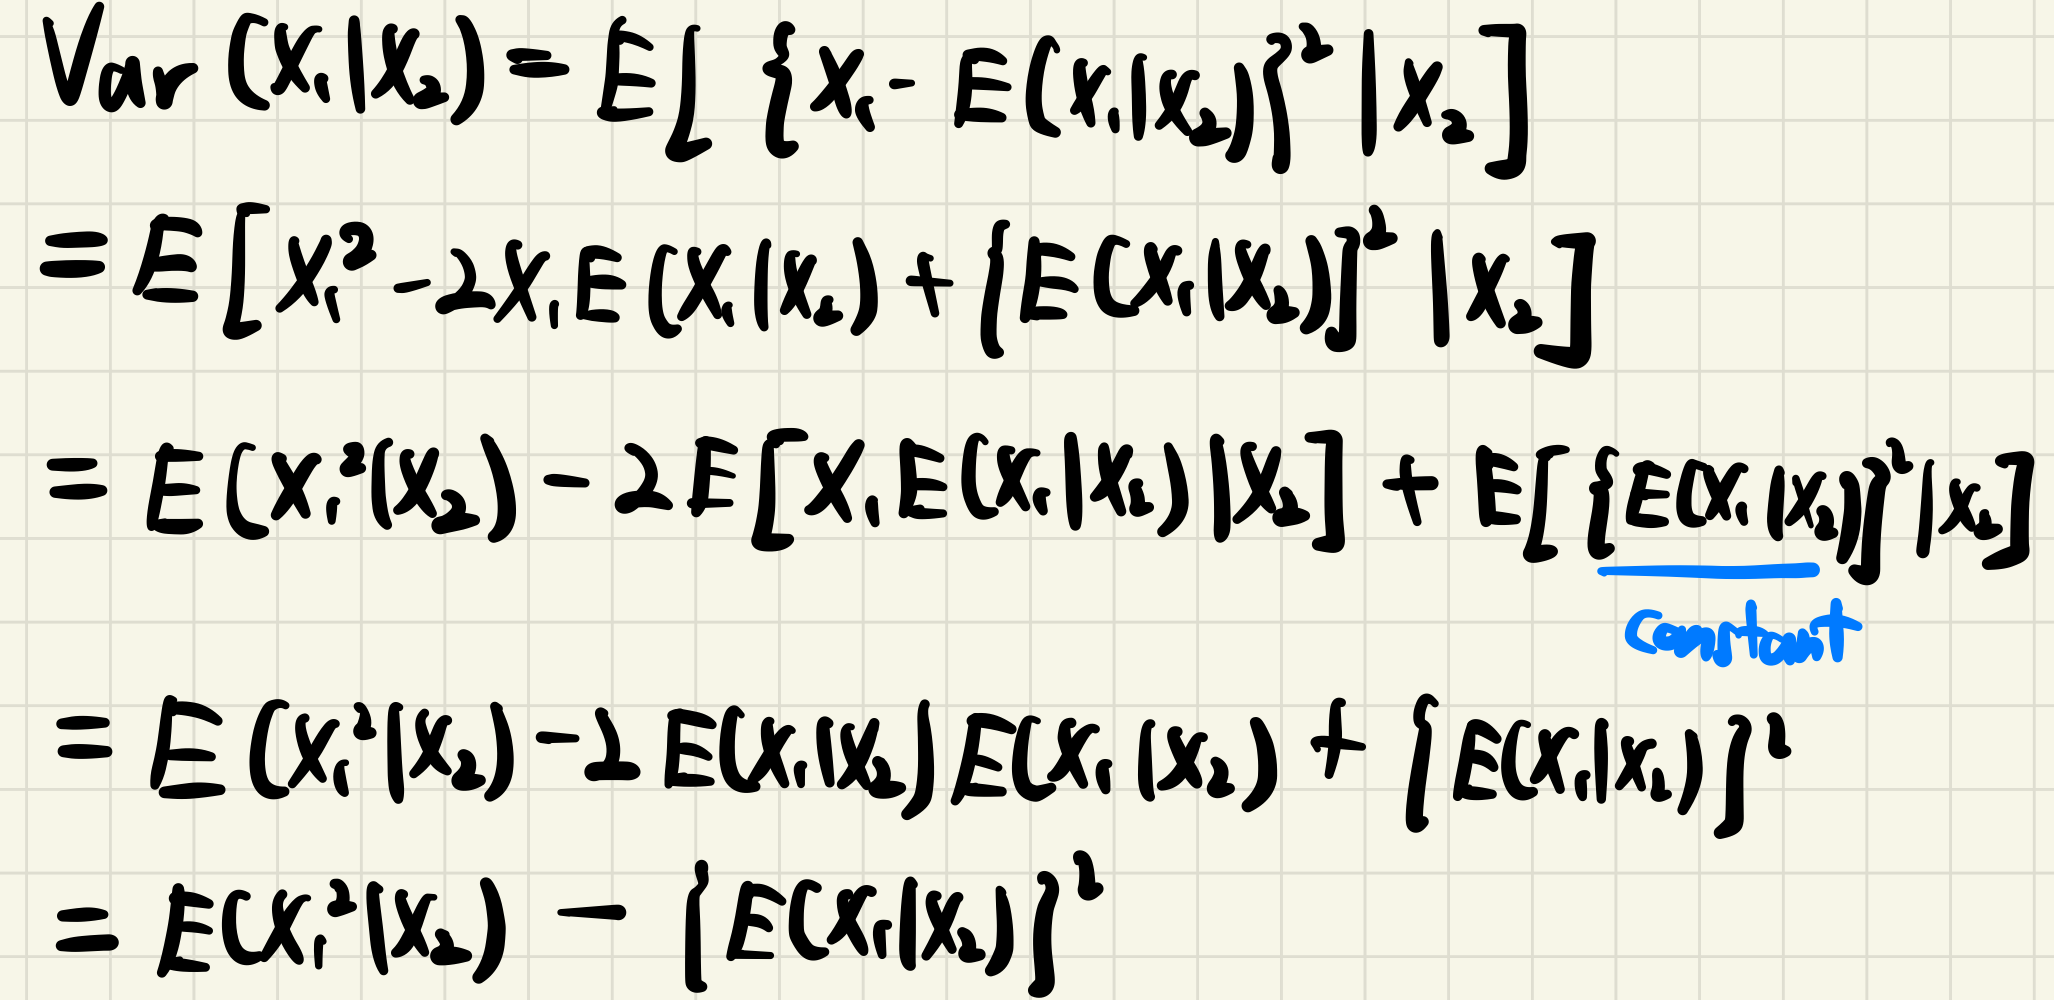 Var (X₁|X₂) = E[ {X₁ - E(X₁|X₂)}² | X₂ ]
= E[ X₁² - 2X₁E(X₁|X₂) + {E(X₁|X₂)}² | X₂ ]
= E(X₁²|X₂) - 2E[X₁E(X₁|X₂)|X₂] + E[{E(X₁|X₂)}²|X₂]
constant
= E(X₁²|X₂) - 2E(X₁|X₂)E(X₁|X₂) + {E(X₁|X₂)}²
= E(X₁²|X₂) - {E(X₁|X₂)}²